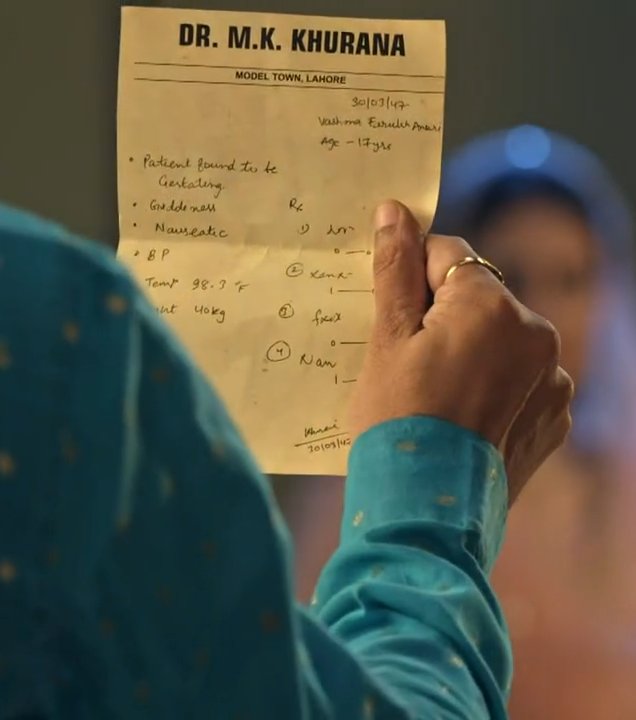 DR. M.K. KHURANA
MODEL TOWN, LAHORE
30/03/47
Vashma Farukh Ansari
Age - 17yrs
• Patient found to be
Gestating.
• Giddeness
• Nauseatic
• BP
Temp 98.3 °F
40kg
Rx
1)
0
② xanx
1
③
0
④ Nan
1
30/03/47